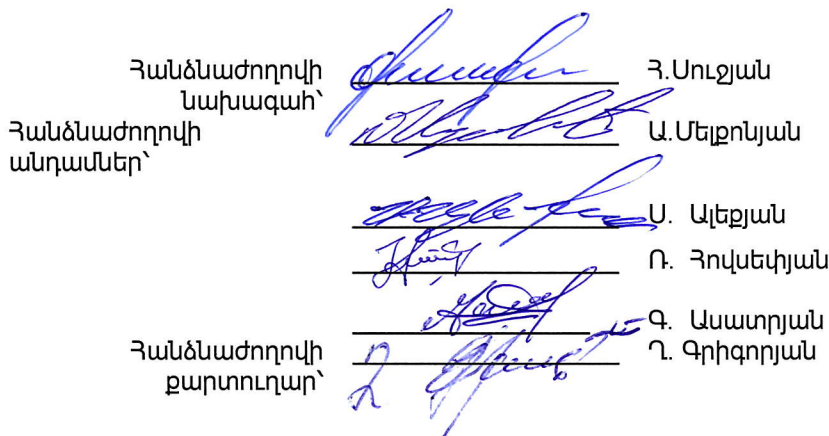 Հանձնաժողովի
նախագահ՝
Հ.Սուջյան
Հանձնաժողովի
անդամներ՝
Ա.Մելքոնյան
Ս. Ալեքյան
Ռ. Հովսեփյան
Գ. Ասատրյան
Հանձնաժողովի
քարտուղար՝
Ղ. Գրիգորյան